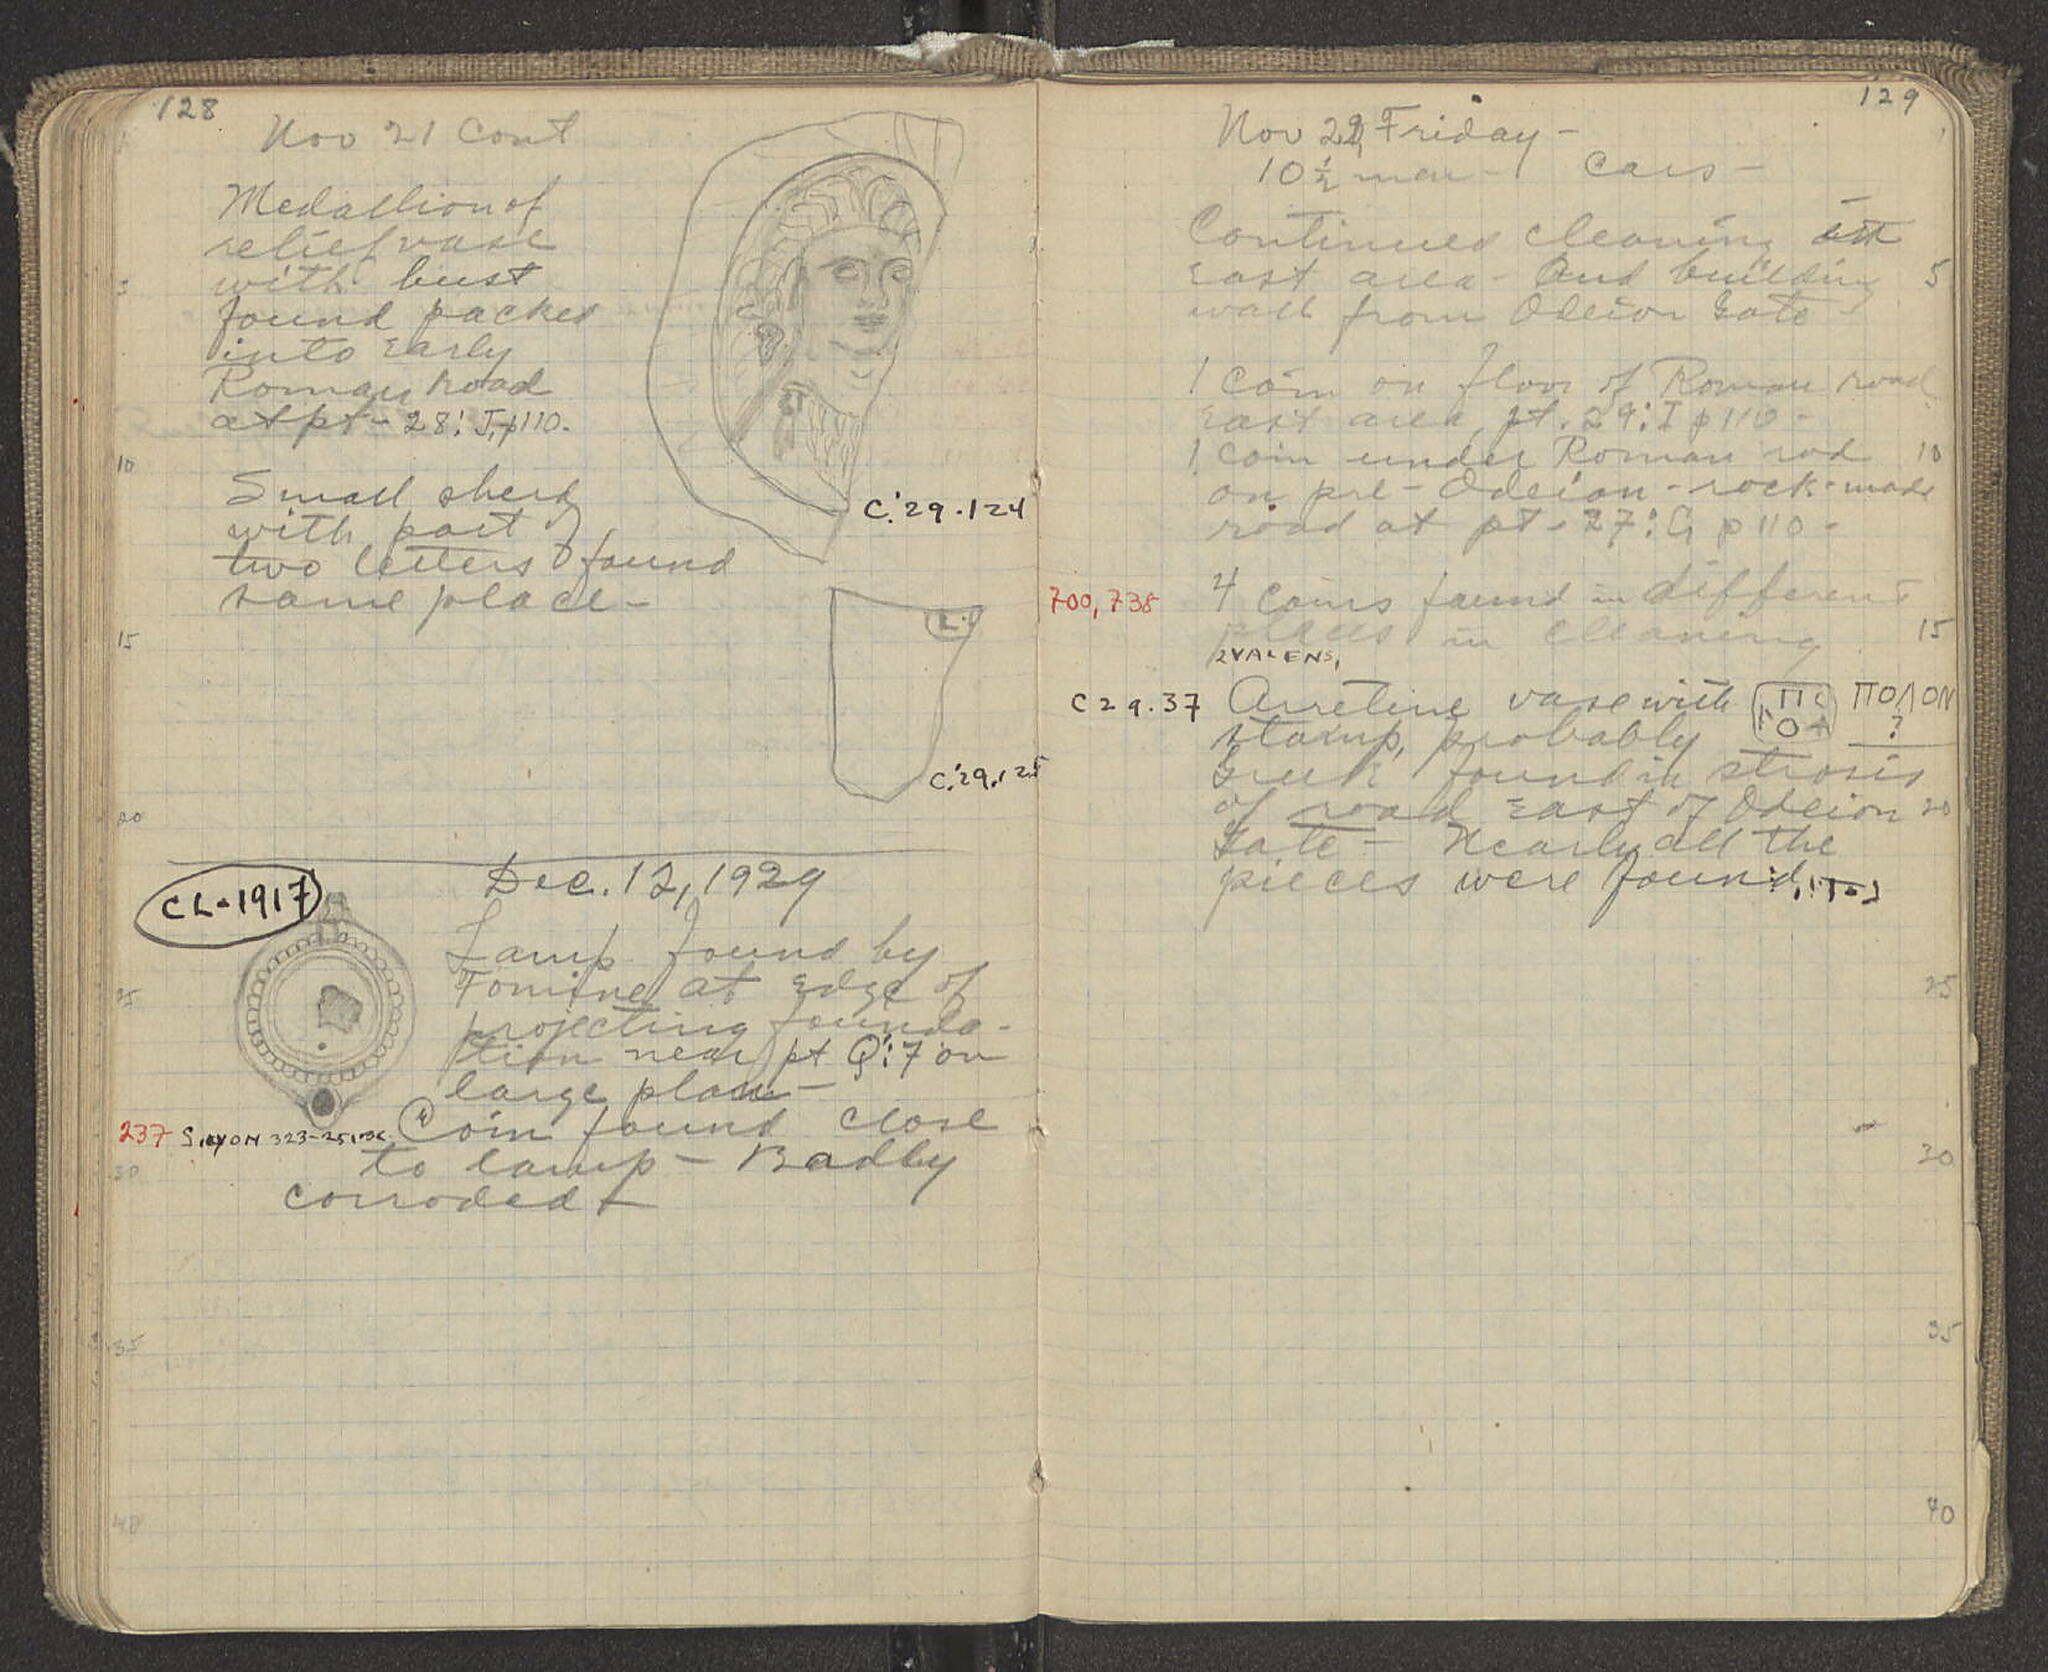 128
Nov 21 Cont
Medallion of
relief vase
with bust
found packed
into Early
Roman road
at pt - 28: J, p110.
C.'29.124
Small sherd
with part of
two letters found
same place -
C.'29.125
Dec. 12, 1929
CL-1917
Lamp found by
at edge of
projecting founda-
tion near pt Q:7 on
large plan -
237 SICYON 323-251 BC. Coin found close
to lamp - Badly
corroded -
5
10
15
20
25
30
35
40
129
Nov 22, Friday -
10 1/2 men - 1 Cars -
Continued cleaning in
East area - and building
wall from Odeion Gate -
1 coin on floor of Roman road
East area, pt. 29:I p110 -
1 coin under Roman rod
on pre-Odeion - rock-made
road at pt. 27:G p110 -
700, 738 4 coins found in different
places in cleaning
2 VALENS,
C29.37 Arretine vase with ΠΟΛΟΝ
stamp, probably ?
Greek found in strosis
of road East of Odeion
Gate - Nearly all the
pieces were found
5
10
15
20
25
30
35
40